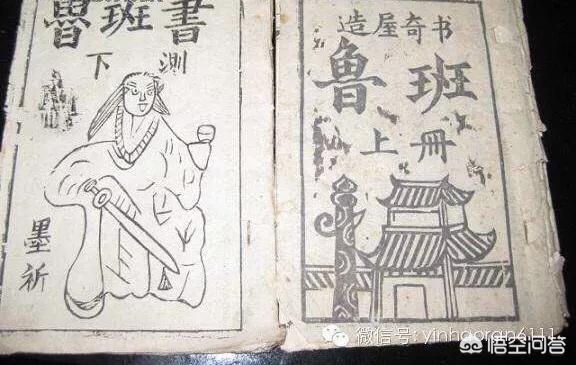 魯班書
下測
墨祈
造屋奇书
鲁班
上冊
微信号: yinhaoran6111
悟空问答